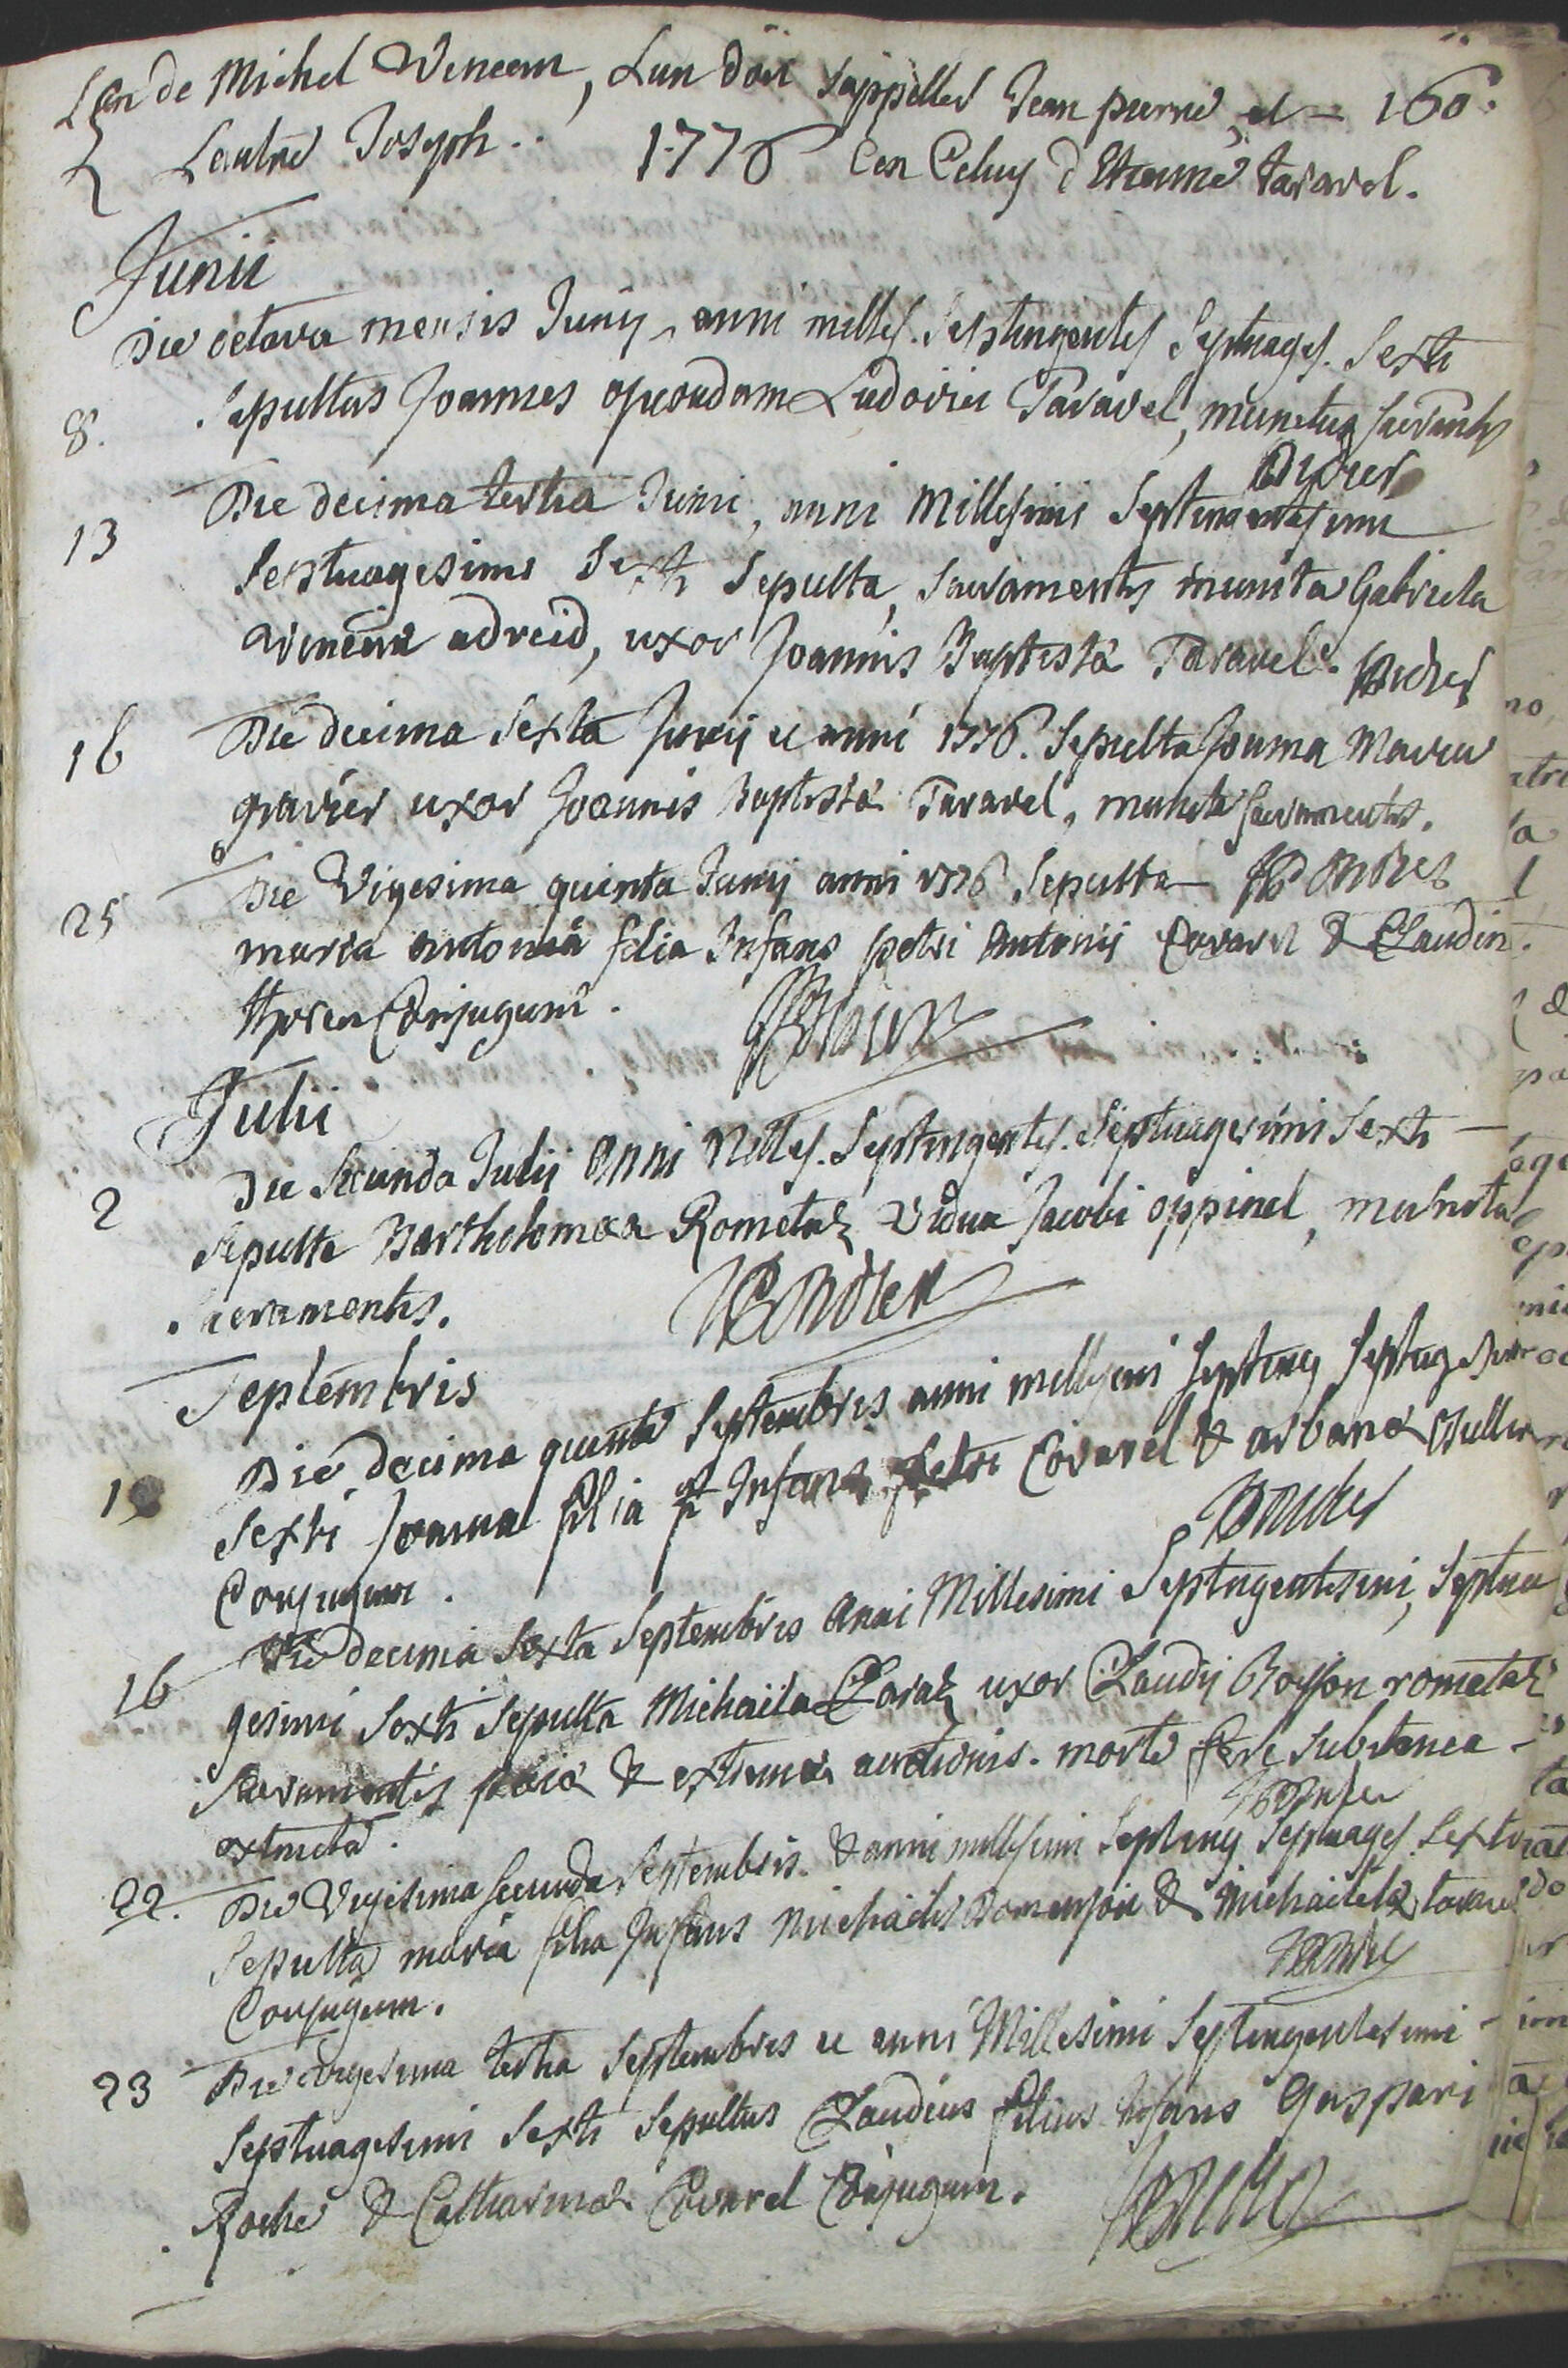 Lan de Michel Vincent, Lun doit sappeller Jean pierre, et - 166.
Lautre Joseph.. 1776 Cen Celuy d'Etienne taravel.
Junii
Die octava mensis Junij, anni milles. Septingentes Septuages. Sexti
8. Sepultus Joannes quondam Ludovici Taravel, munitus sacramentis
Didier
13 Die decima tertia Junii, anni Millesimi Septingentesimi
Septuagesimi Sexti Sepulta, Sacramentis munita Gabriela
vincent adreid, uxor Joannis Baptistæ Taravel. Didier
16 Die decima Sexta Junij et anni 1776. Sepulta Joanna Maria
gravier uxor Joannis Baptistæ Taravel, munita sacramentis.
25 Die Vigesima quinta Junij anni 1776 Sepulta Didier
maria antonia filia Infans petri Antonij Covarel & Claudin.
Conjugum.
Julii
2 Die Secunda Julij Anni Milles. Septingentes. Septuagesimi Sexti
Sepulta Bartholomæa Rometaz vidua Jacobi oppinel, munita
Sacramentis. Didier
Septembris
Die decima quinta Septembris anni millesimi Septing Septuagesimi
Sexti Joanna filia Infans petri Covarel & urbanæ
Conjugum. Didier
16 Die decima Sexta Septembris Anni Millesimi Septingentesimi, Septua
gesimi Sexti Sepulta Michaëla Claraz uxor Claudij Bosson rometaz
Sacramentis & extremæ unctionis. morte fere Subitanea
extincta. Didier
22. Die Vigesima Secunda Septembris & anni millesimi Septing Septuages. Sexti
Sepulta maria filia Infans Michaëlis & Michaëlæ taravel
Conjugum. Didier
23 Die vigesima tertia Septembris et anni Millesimi Septingentesimi
Septuagesimi Sexti Sepultus Claudius filius Infans Gaspari
Roche & Catharinæ Covarel Conjugum. Didier